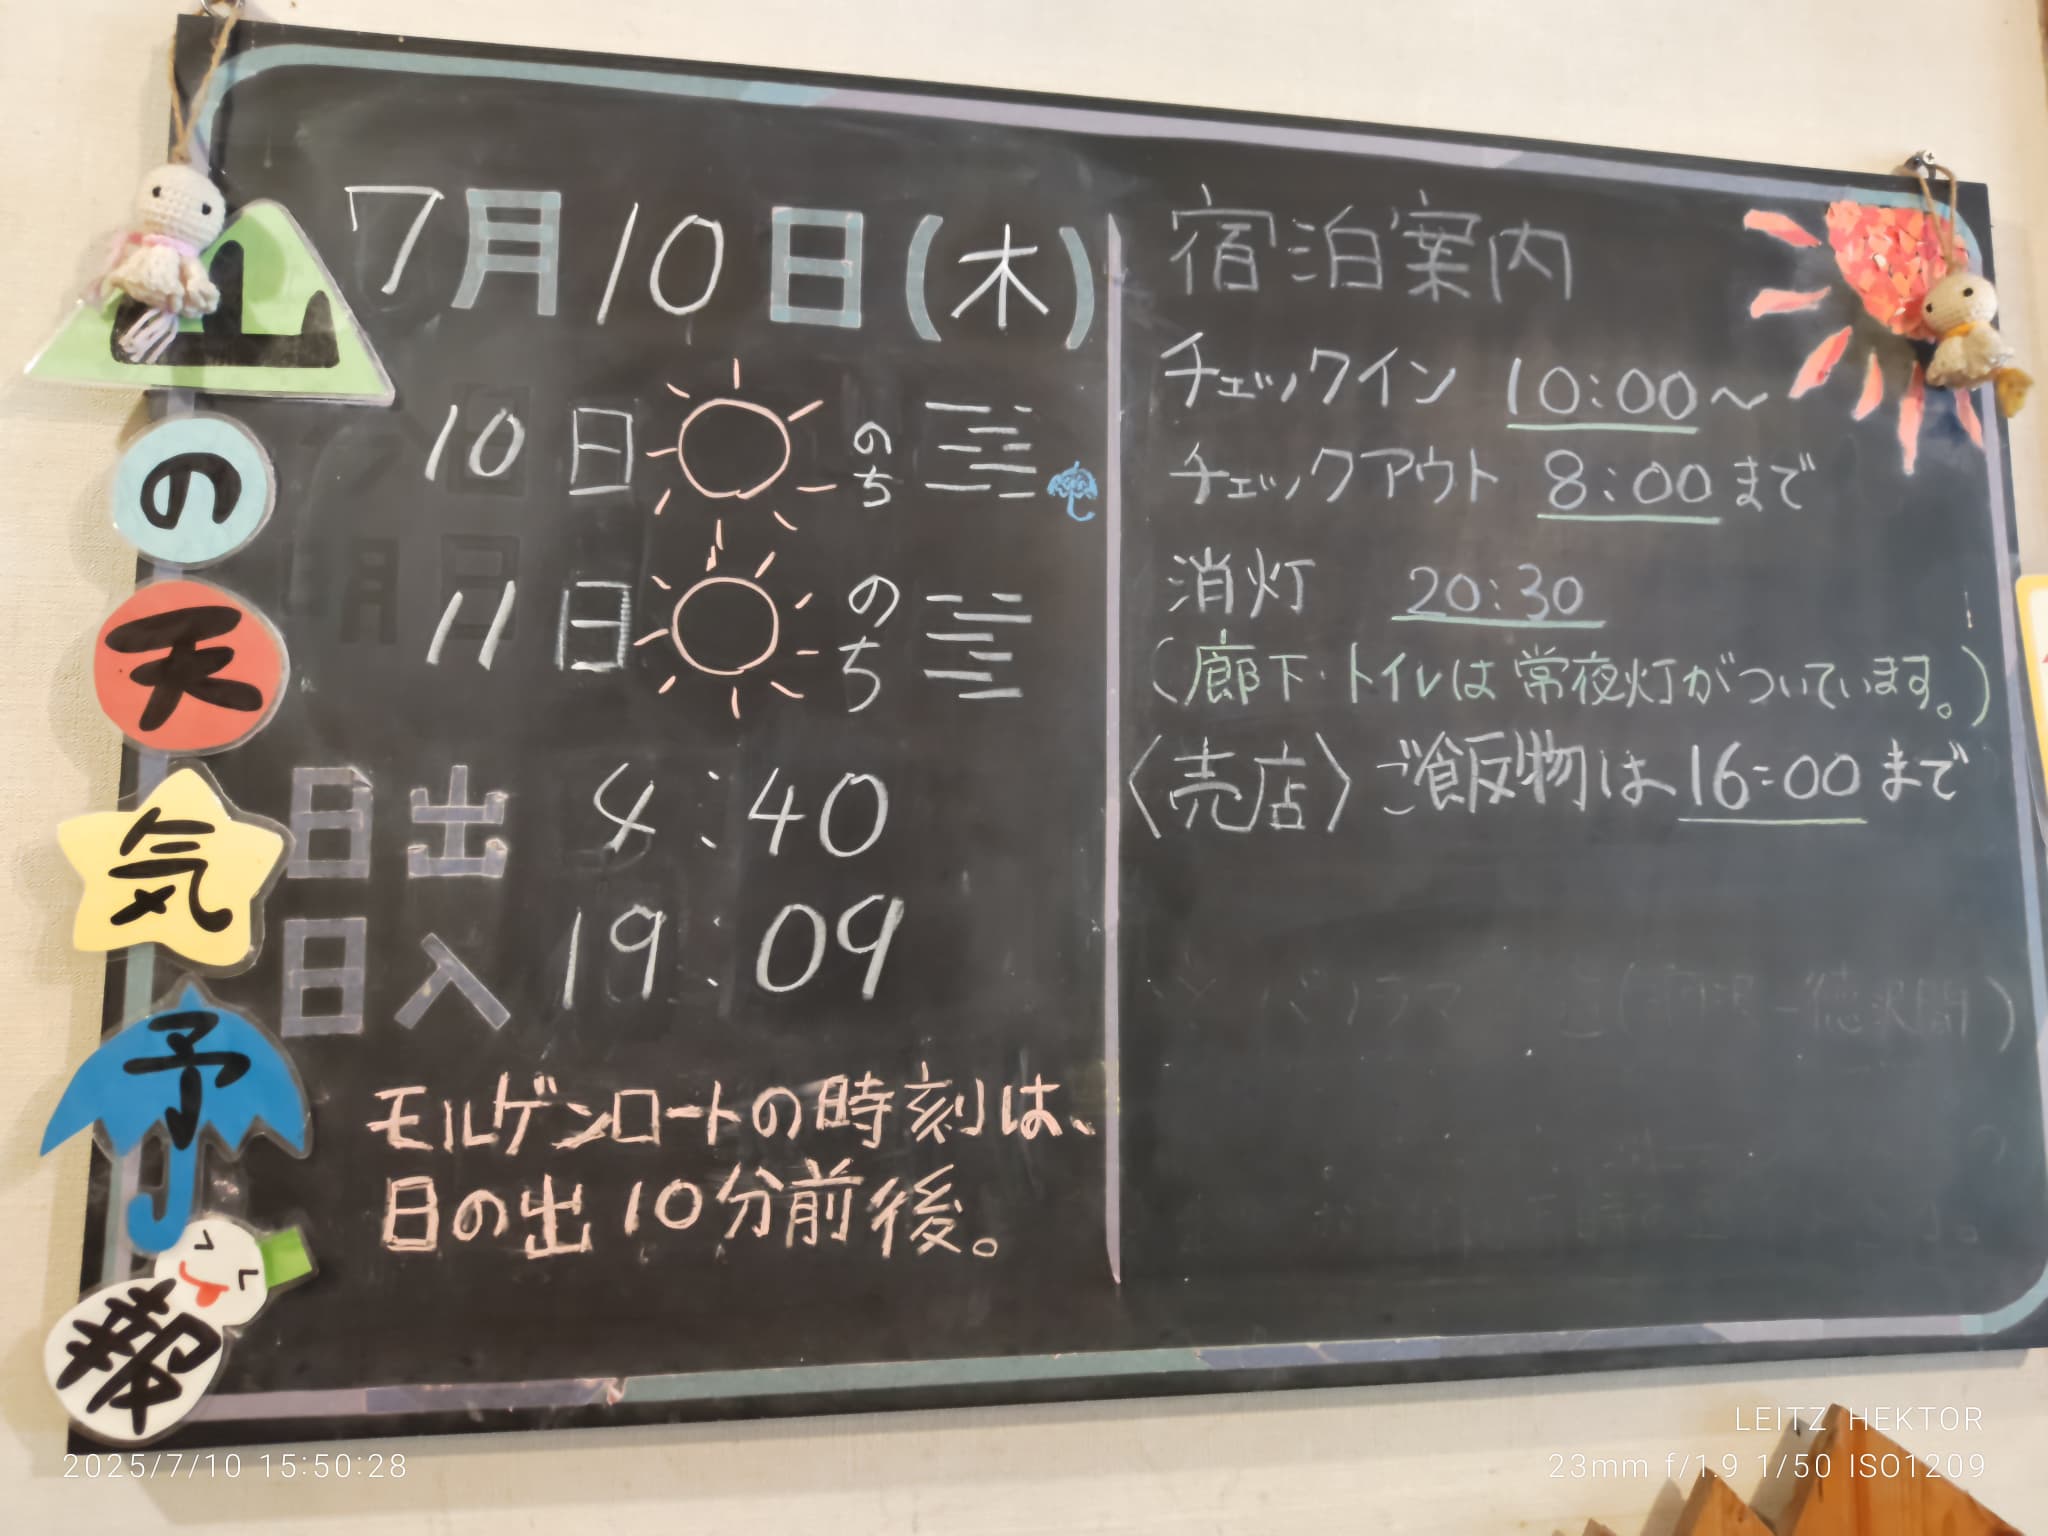 山の天気予報
7月10日(木)
10日 のち
11日 のち
日出 4:40
日入 19:09
モルゲンロートの時刻は、
日の出10分前後。
宿泊案内
チェックイン 10:00〜
チェックアウト 8:00まで
消灯 20:30
(廊下・トイレは常夜灯がついています。)
〈売店〉ご飯物は16:00まで
2025/7/10 15:50:28
LEITZ HEKTOR
23mm f/1.9 1/50 ISO1209